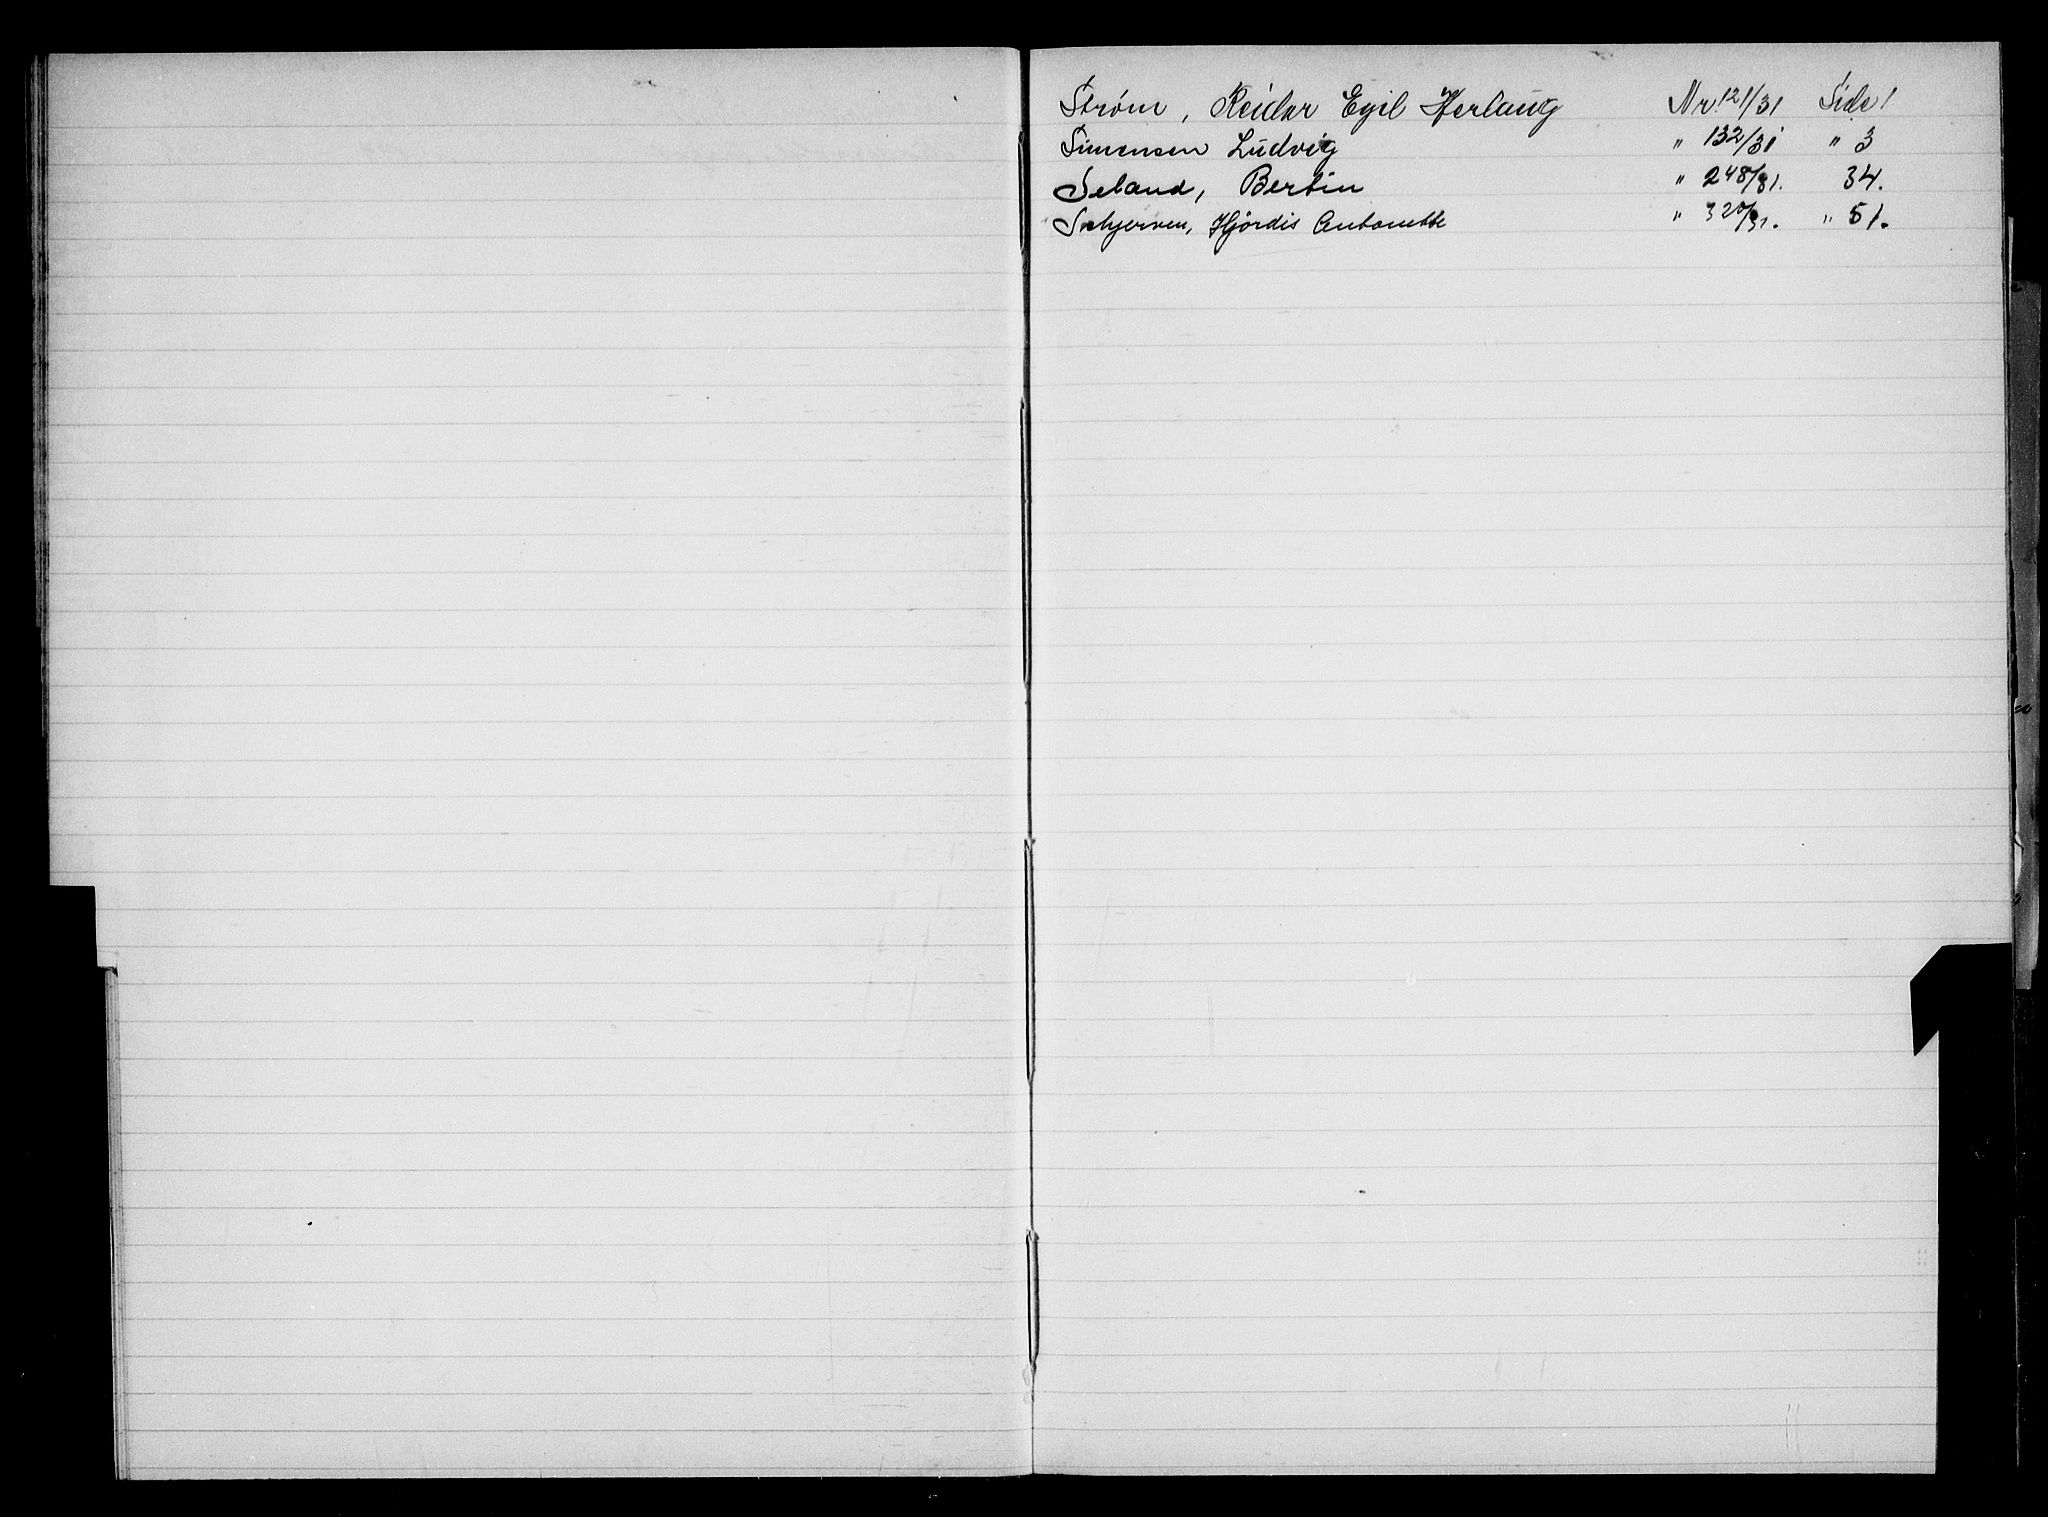 Strøm, Reidar Egil Herlaug Nr. 121/31 Side 1
Simensen Ludvig " 132/31 " 3
Seland, Bertin " 248/31. 34.
Schjerven, Hjördis Antonette " 320/31. " 51.